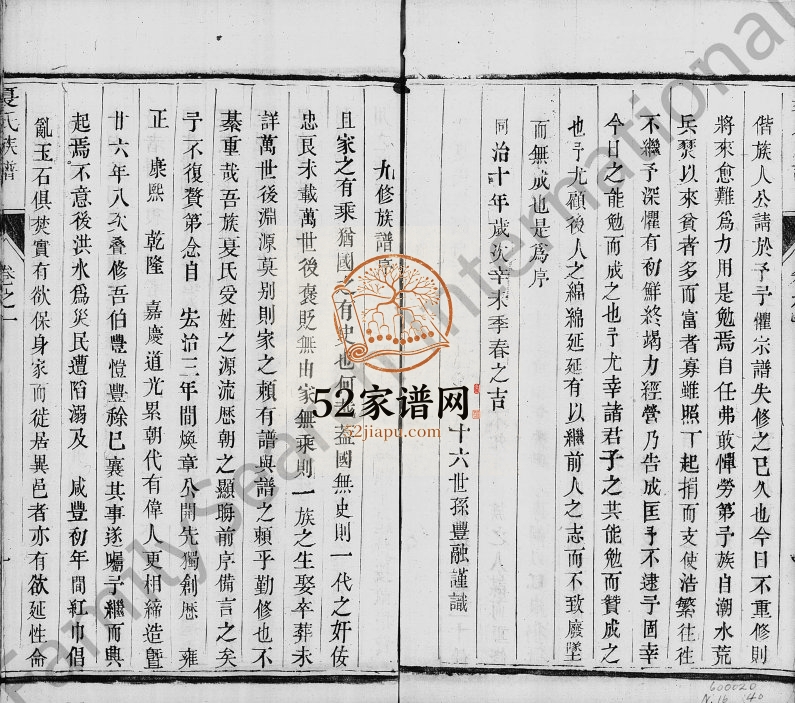 偕族人公請於予予懼宗譜失修之已久也今日不重修則
將來愈難爲力用是勉焉自任弗敢憚勞第予族自潮水荒
兵燹以來貧者多而富者寡雖照丁起捐而支使浩繁往往
不繼予深懼有初鮮終竭力經營乃告成匡予不逮予固幸
今日之能勉而成之也予尤幸諸君子之共能勉而贊成之
也予尤顧後人之綿綿延延有以繼前人之志而不致廢墜
而無成也是爲序
同治十年歲次辛未季春之吉
十六世孫豐融謹識
九修族譜序
且家之有乘猶國之有史也何 蓋國無史則一代之奸佞
忠良未載萬世後褒貶無由家無乘則一族之生娶卒葬未
詳萬世後淵源莫别則家之頼有譜與譜之頼乎勤修也不
綦重哉吾族夏氏受姓之源流歷朝之顯聨前序備言之矣
予不復贅第念自 宏治三年間煥章公開先獨創歷 雍
正 康熙 乾隆 嘉慶道光累朝代有偉人更相締造曁
廿六年八次叠修吾伯豐愷豐稌已襄其事遂囑予繼而典
起焉不意後洪水爲災民遭陷溺及 咸豐初年間紅巾倡
亂玉石俱焚實有欲保身家而徙居異邑者亦有欲延性命
夏氏族譜
卷之一
52家谱网
52jiapu.com
FamilySearch International
600020
N.16 40